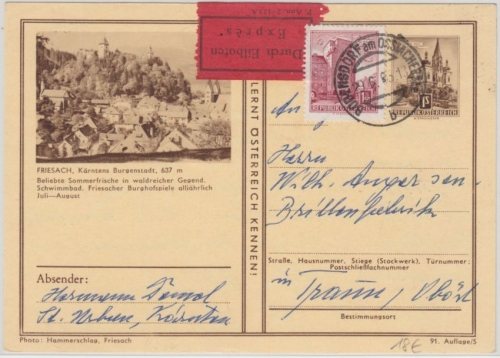 Durch Eilboten
Exprès
REPUBLIK ÖSTERREICH
REPUBLIK ÖSTERREICH
FRIESACH, Kärntens Burgenstadt, 637 m
Beliebte Sommerfrische in waldreicher Gegend.
Schwimmbad. Friesacher Burghofspiele alljährlich
Juli—August
LERNT ÖSTERREICH KENNEN!
An
Herrn
Wilh. Anger sen.
Brillenfabrik
Straße, Hausnummer, Stiege (Stockwerk), Türnummer:
Postschließfachnummer
in Traun, Oböst
Bestimmungsort
Absender:
Hermann
St. Urban, Kärnten
Photo: Hammerschlag, Friesach
18€
91. Auflage/5